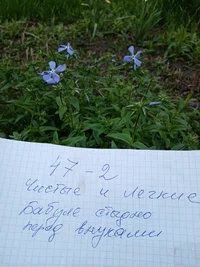 47 - 2
Чистые и Легкие
Бабуле стыдно
перед внуками